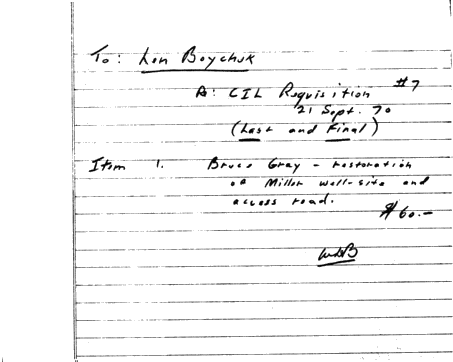 To: Len Boychuk
Re: CIL Requisition #7
21 Sept. 70
(Last and Final)
Item 1. Bruce Gray - restoration
of Miller well-site and
access road.
$60.-